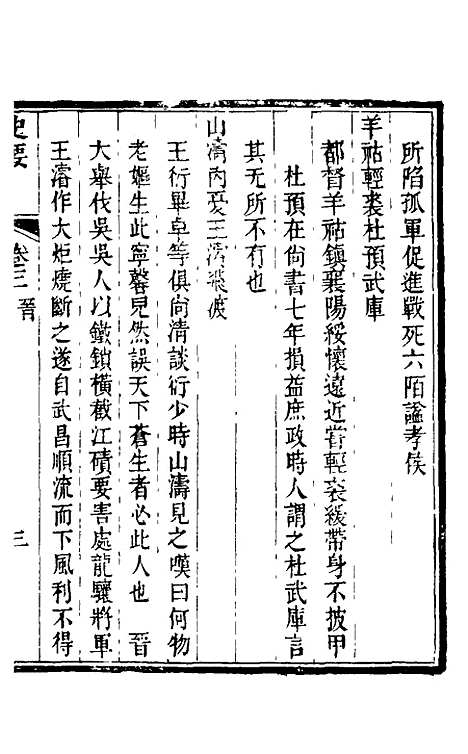 所陷孤軍促進戰死六陌謚孝侯
羊祜輕裘杜預武庫
都督羊祜鎮襄陽綏懷遠近嘗輕裘緩帶身不披甲
杜預在尙書七年損益庶政時人謂之杜武庫言
其無所不有也
山濤內憂王濬飛渡
王衍畢卓等俱尙清談衍少時山濤見之嘆曰何物
老嫗生此寧馨兒然誤天下蒼生者必此人也 晉
大舉伐吳吳人以鐵鎖橫截江磧要害處龍驤將軍
王濬作大炬燒斷之遂自武昌順流而下風利不得
史要 卷三 晉 三